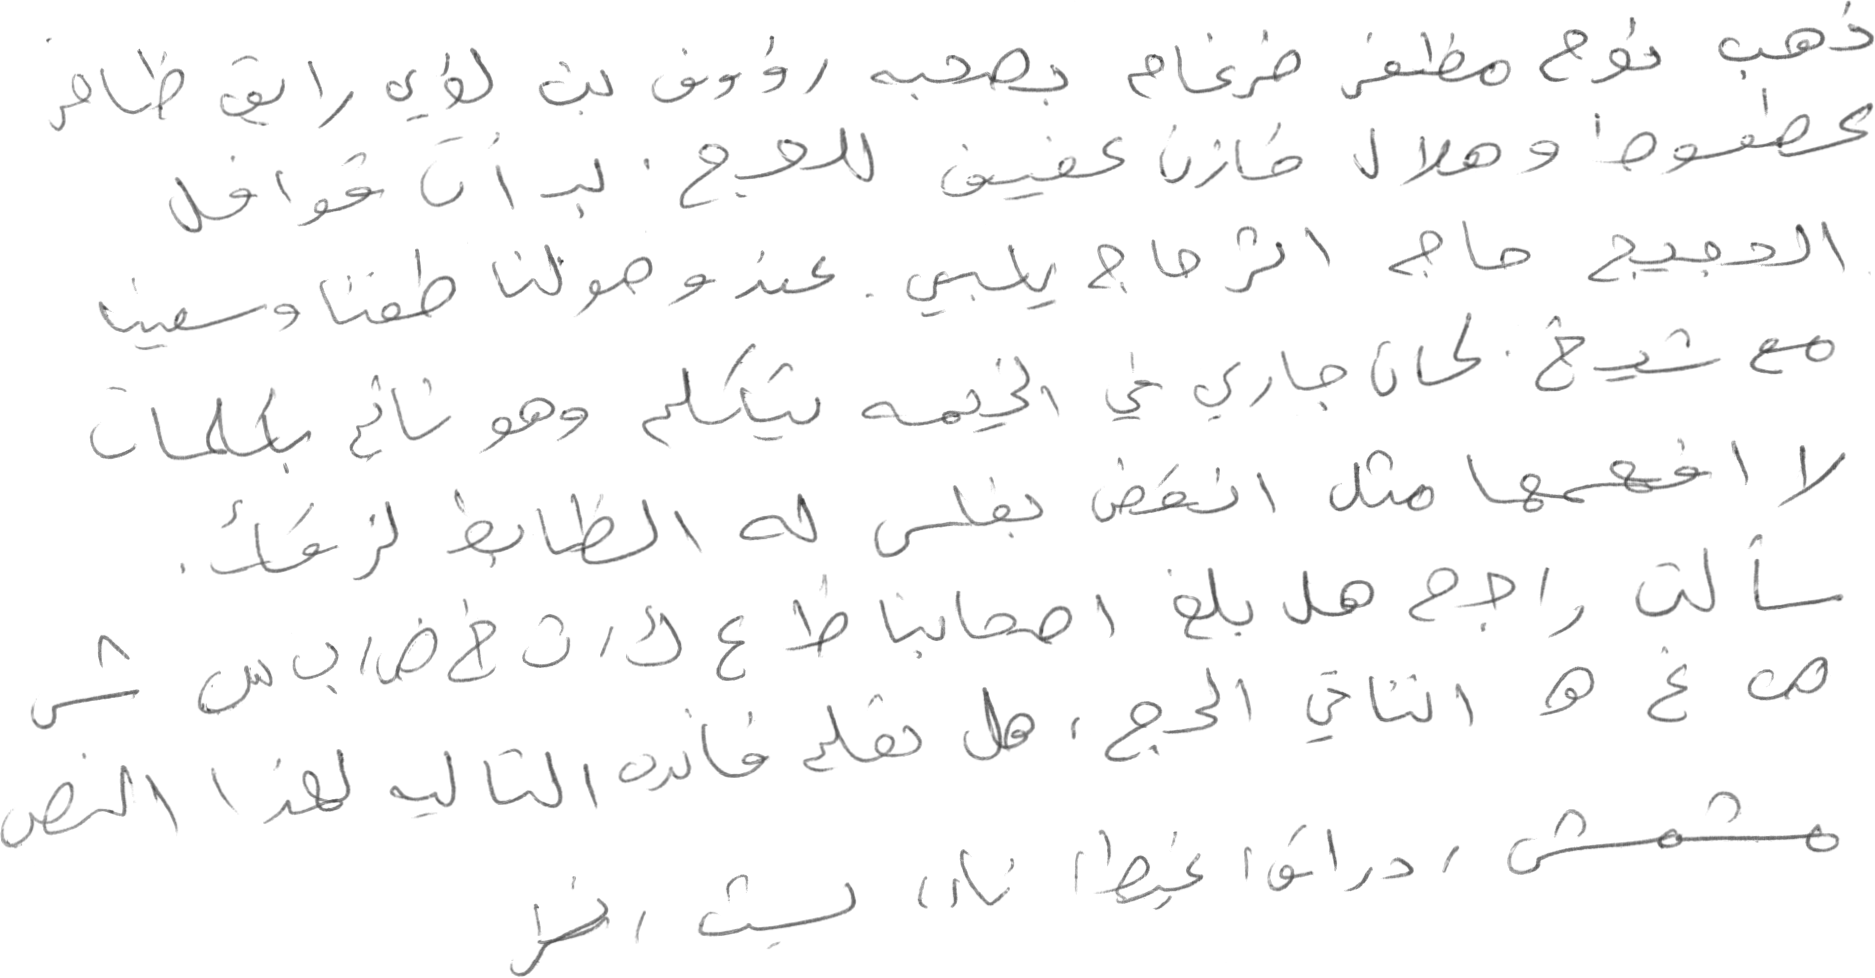 ذهب نوح مظفر ضرغام بصحبه رؤوف بن لؤي رايق ظافر
عطعوط وهلال خازن عفيف للحج. بدأت قوافل
الحجيج حاج اثر حاج يلبي. عند وصولنا طفنا وسعينا
مع شيخ. كان جاري في الخيمه يتكلم وهو نائم بكلمات
لا افهمها مثل انقض بغلس له الظابط لزعك.
سألت راجح هل بلغ اصحابنا ظ ع ك، ث خ ض، ب س ش
ص غ ه التاخي الحج، هل تعلم فائده التاليه لهذا النص
مشمش، دراق، غيظ، ناد، لبث، ضر